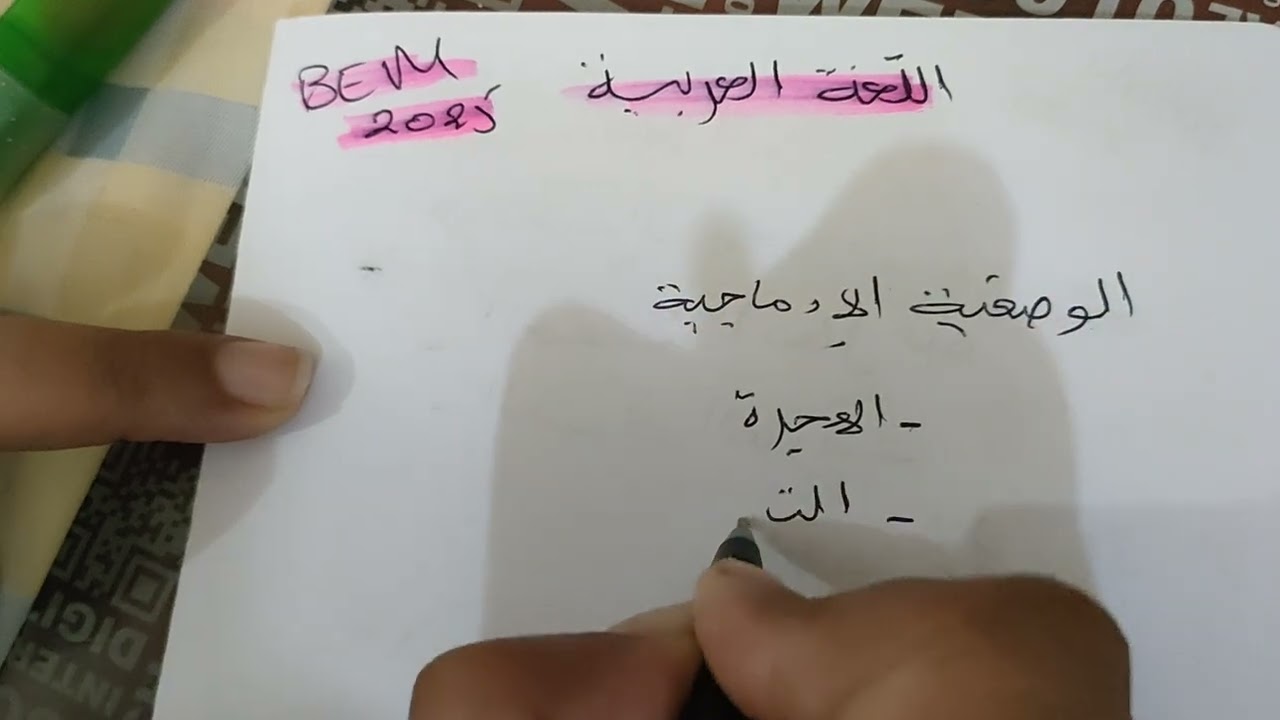 اللغة العربية
BEM
2025
الوضعية الإدماجية
- الهجرة
- الت